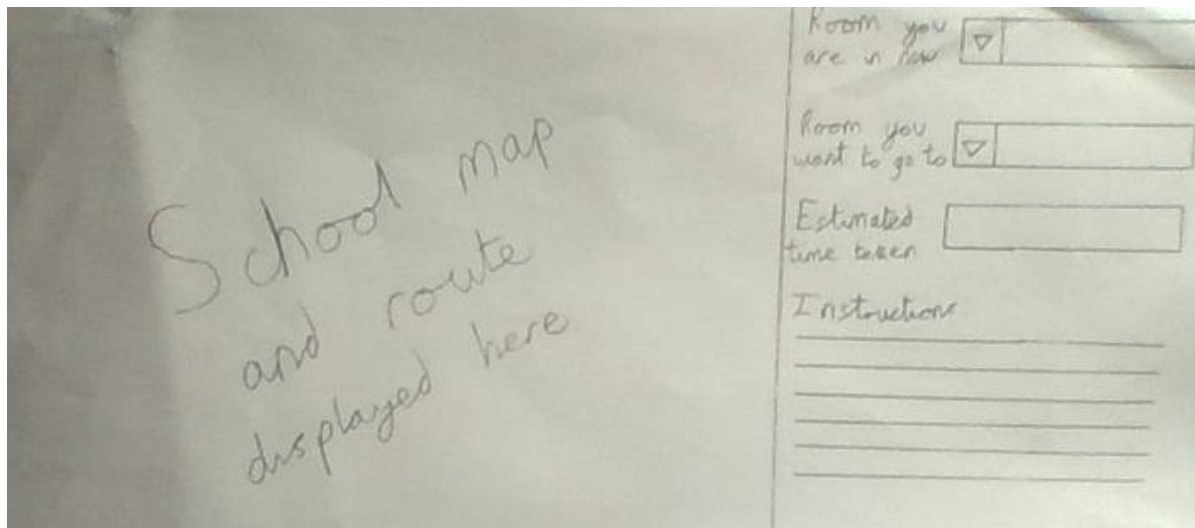 School map
and route
displayed here
Room you
are in now
Room you
want to go to
Estimated
time taken
Instructions